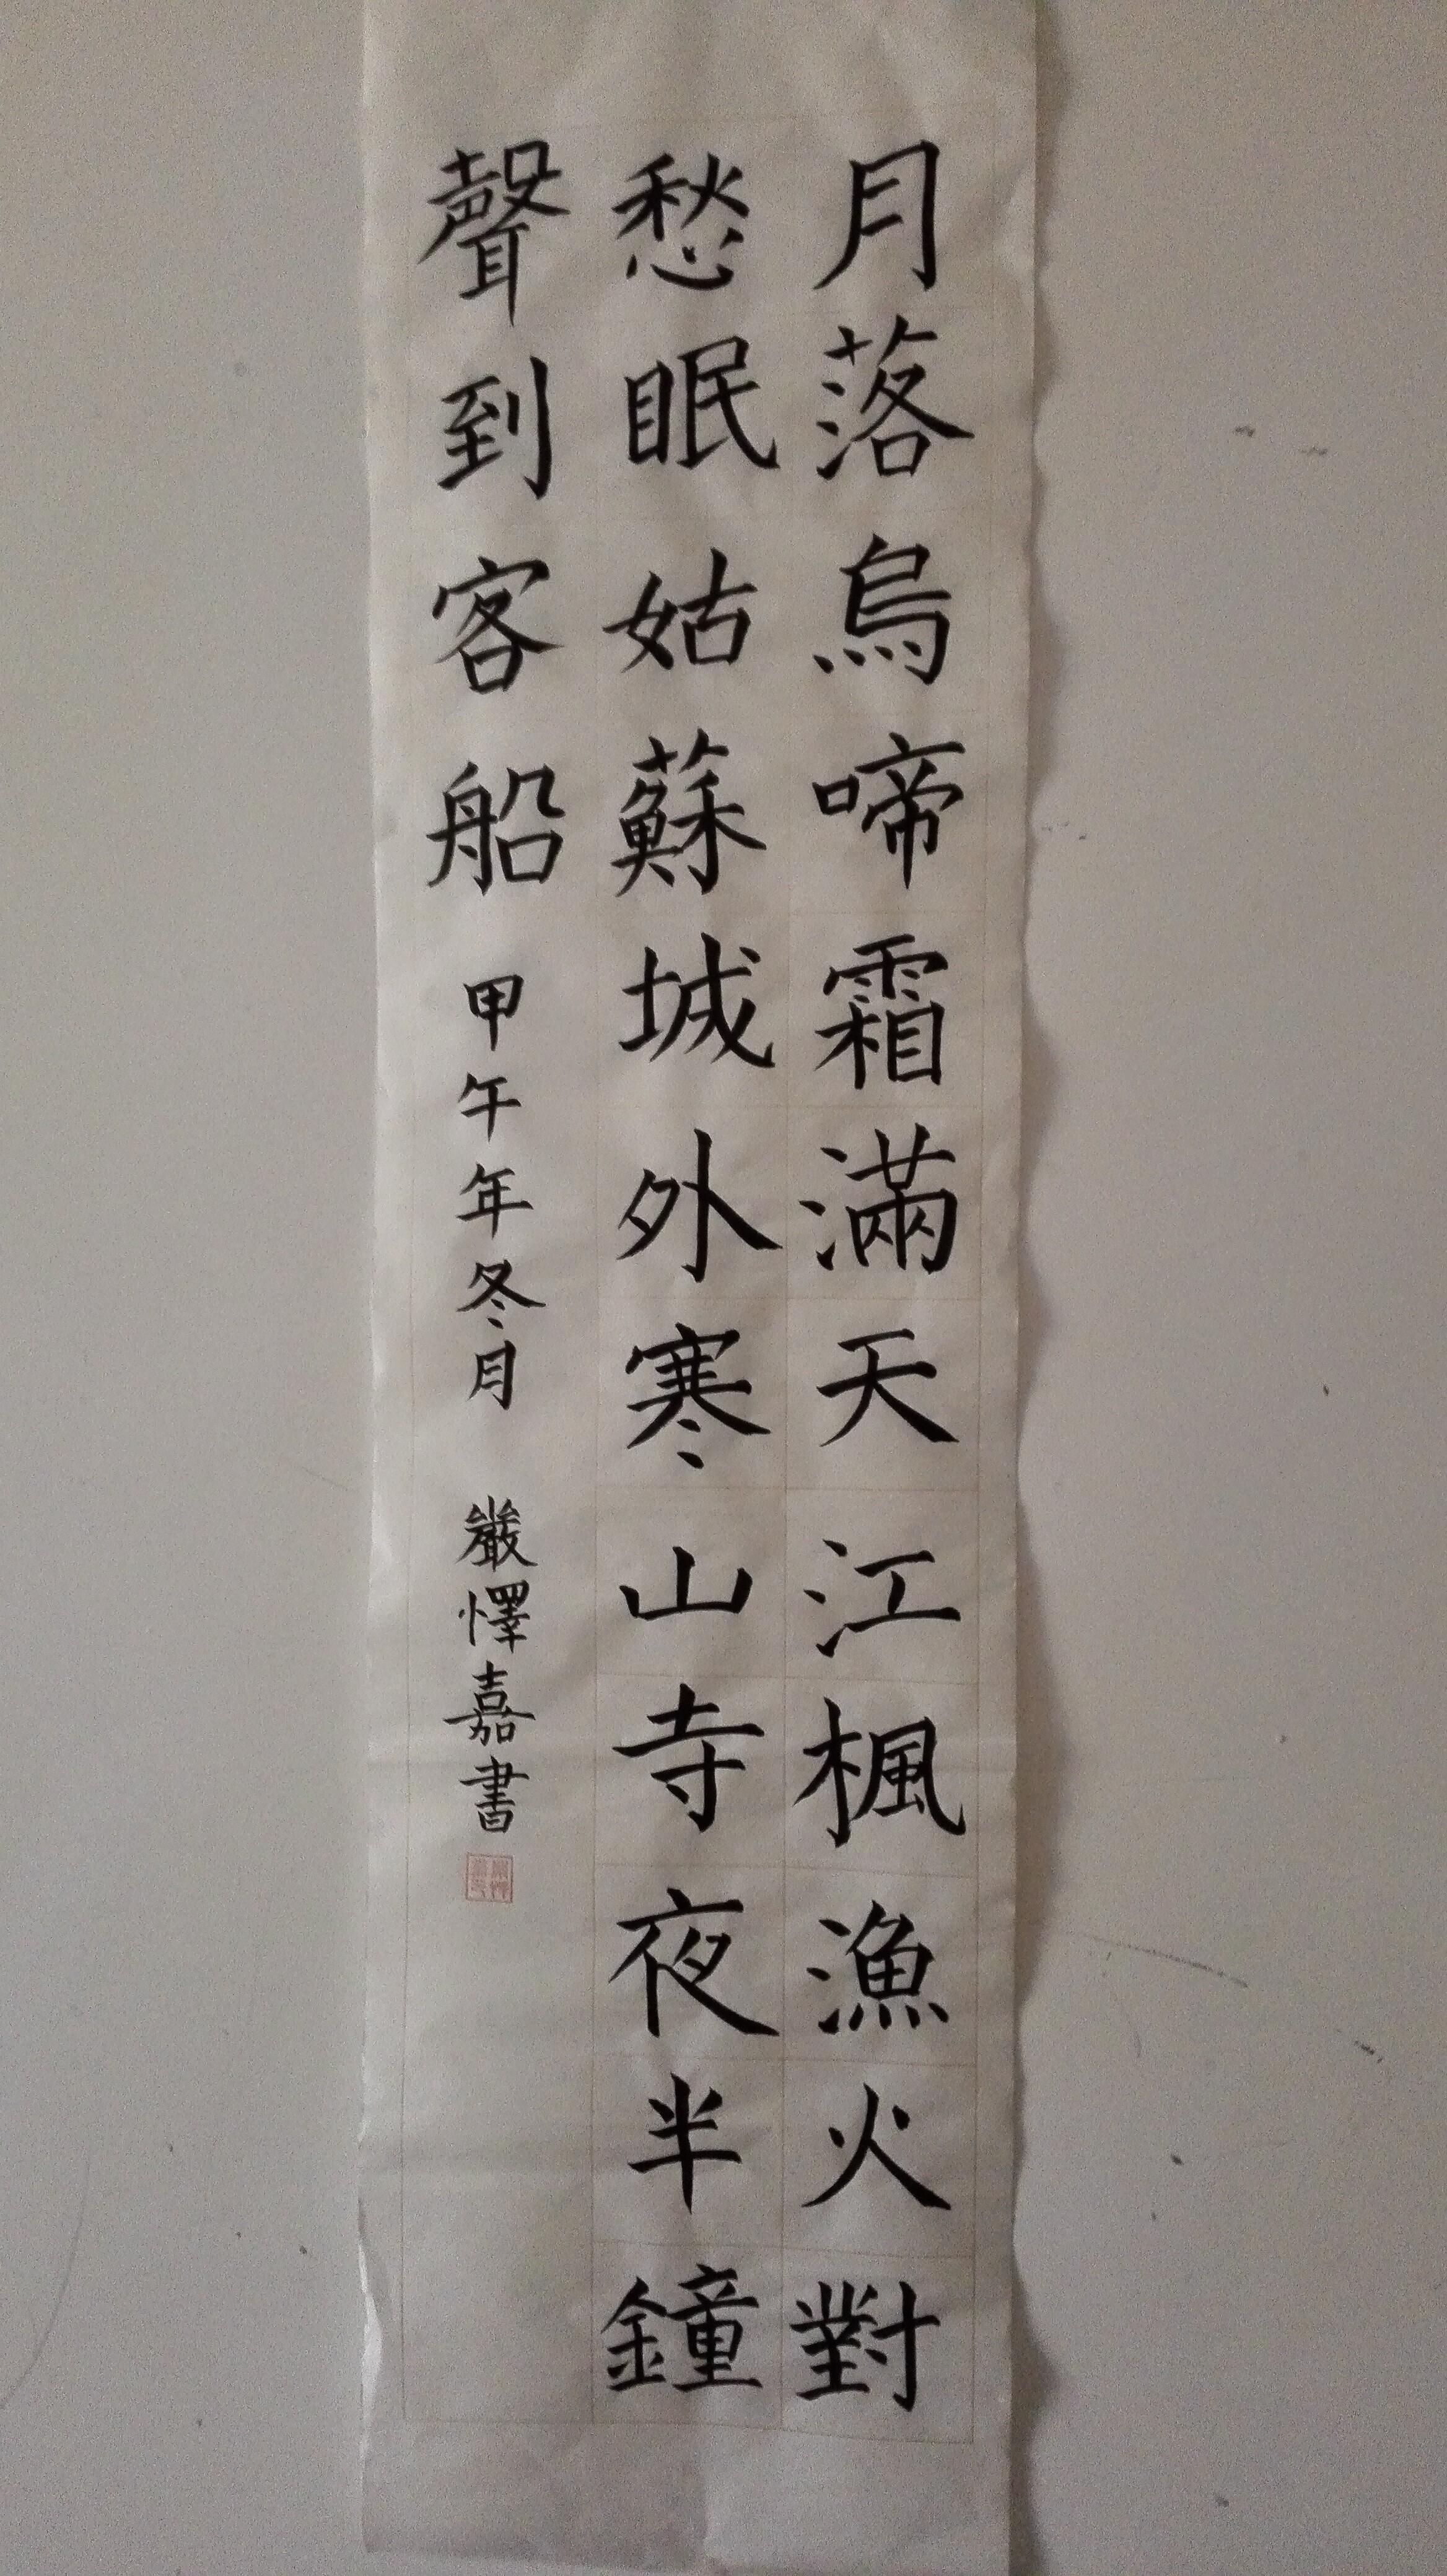 月落烏啼霜滿天江楓漁火對
愁眠姑蘇城外寒山寺夜半鐘
聲到客船 甲午年冬月 嚴懌嘉書